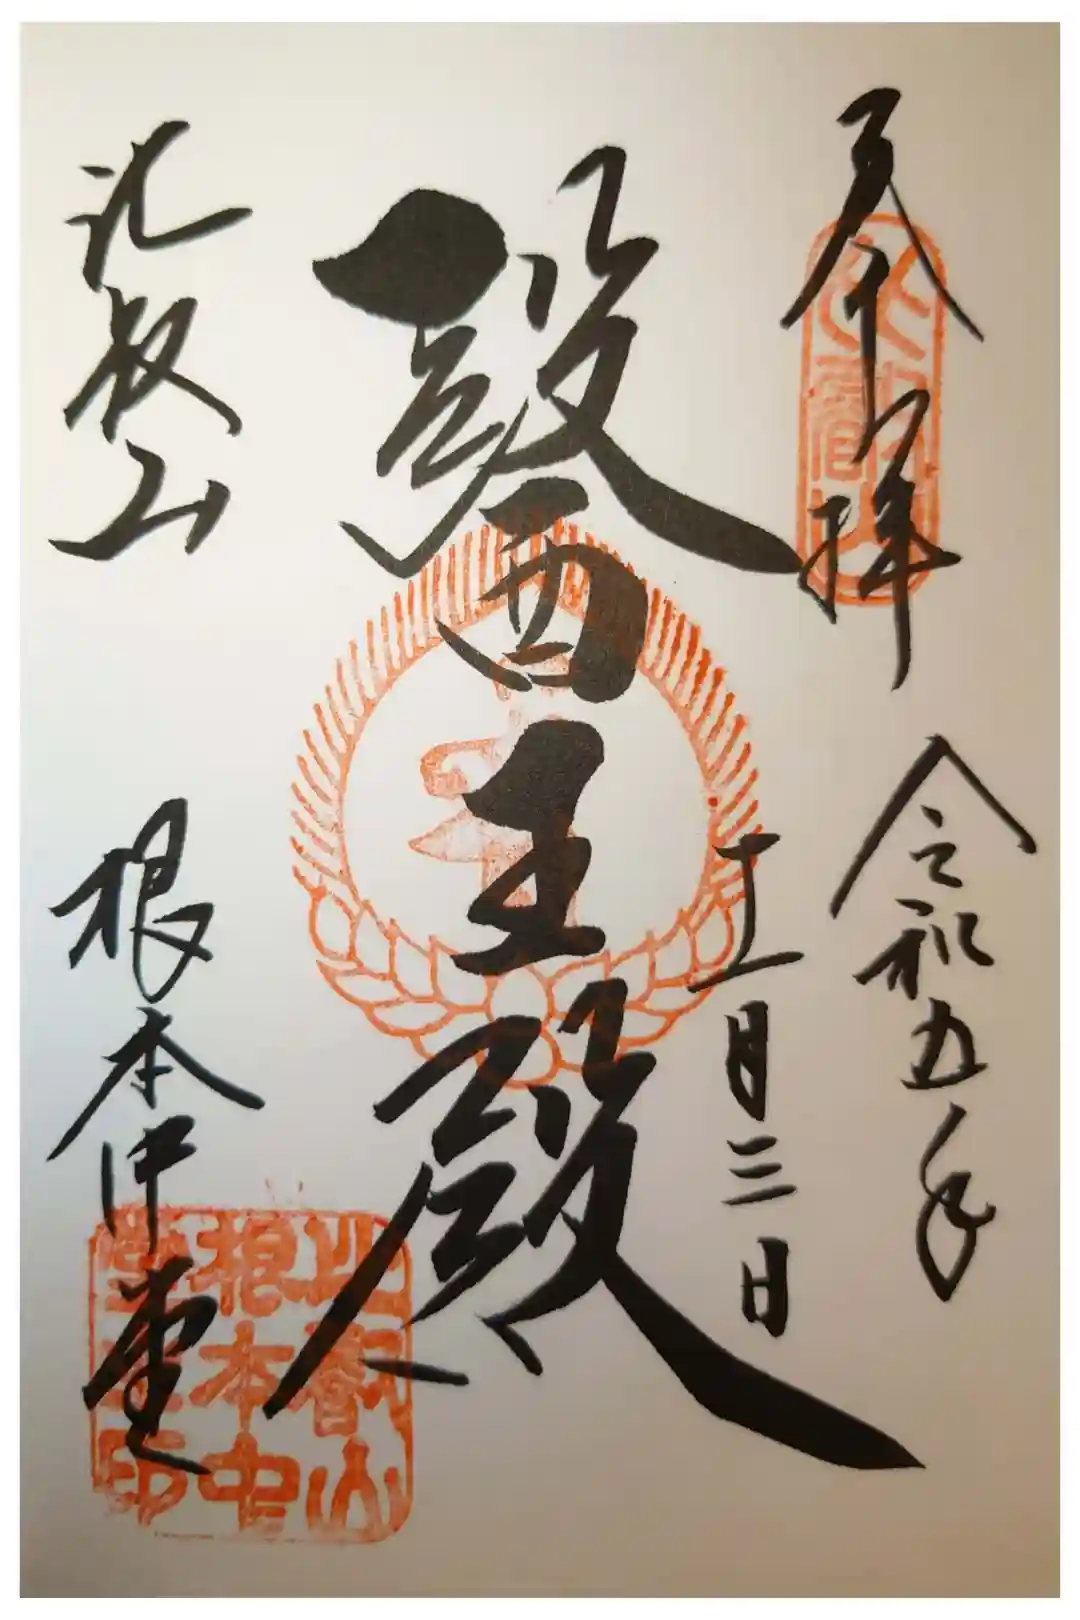 奉拝
令和五年
十一月三日
醫王殿
比叡山
根本中堂
比叡山
根本中
堂主印